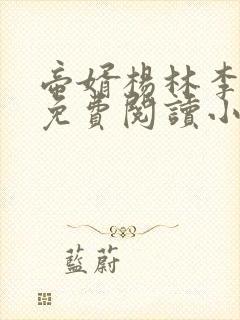 壺婿楊林李
免費閱讀小
藍蔚